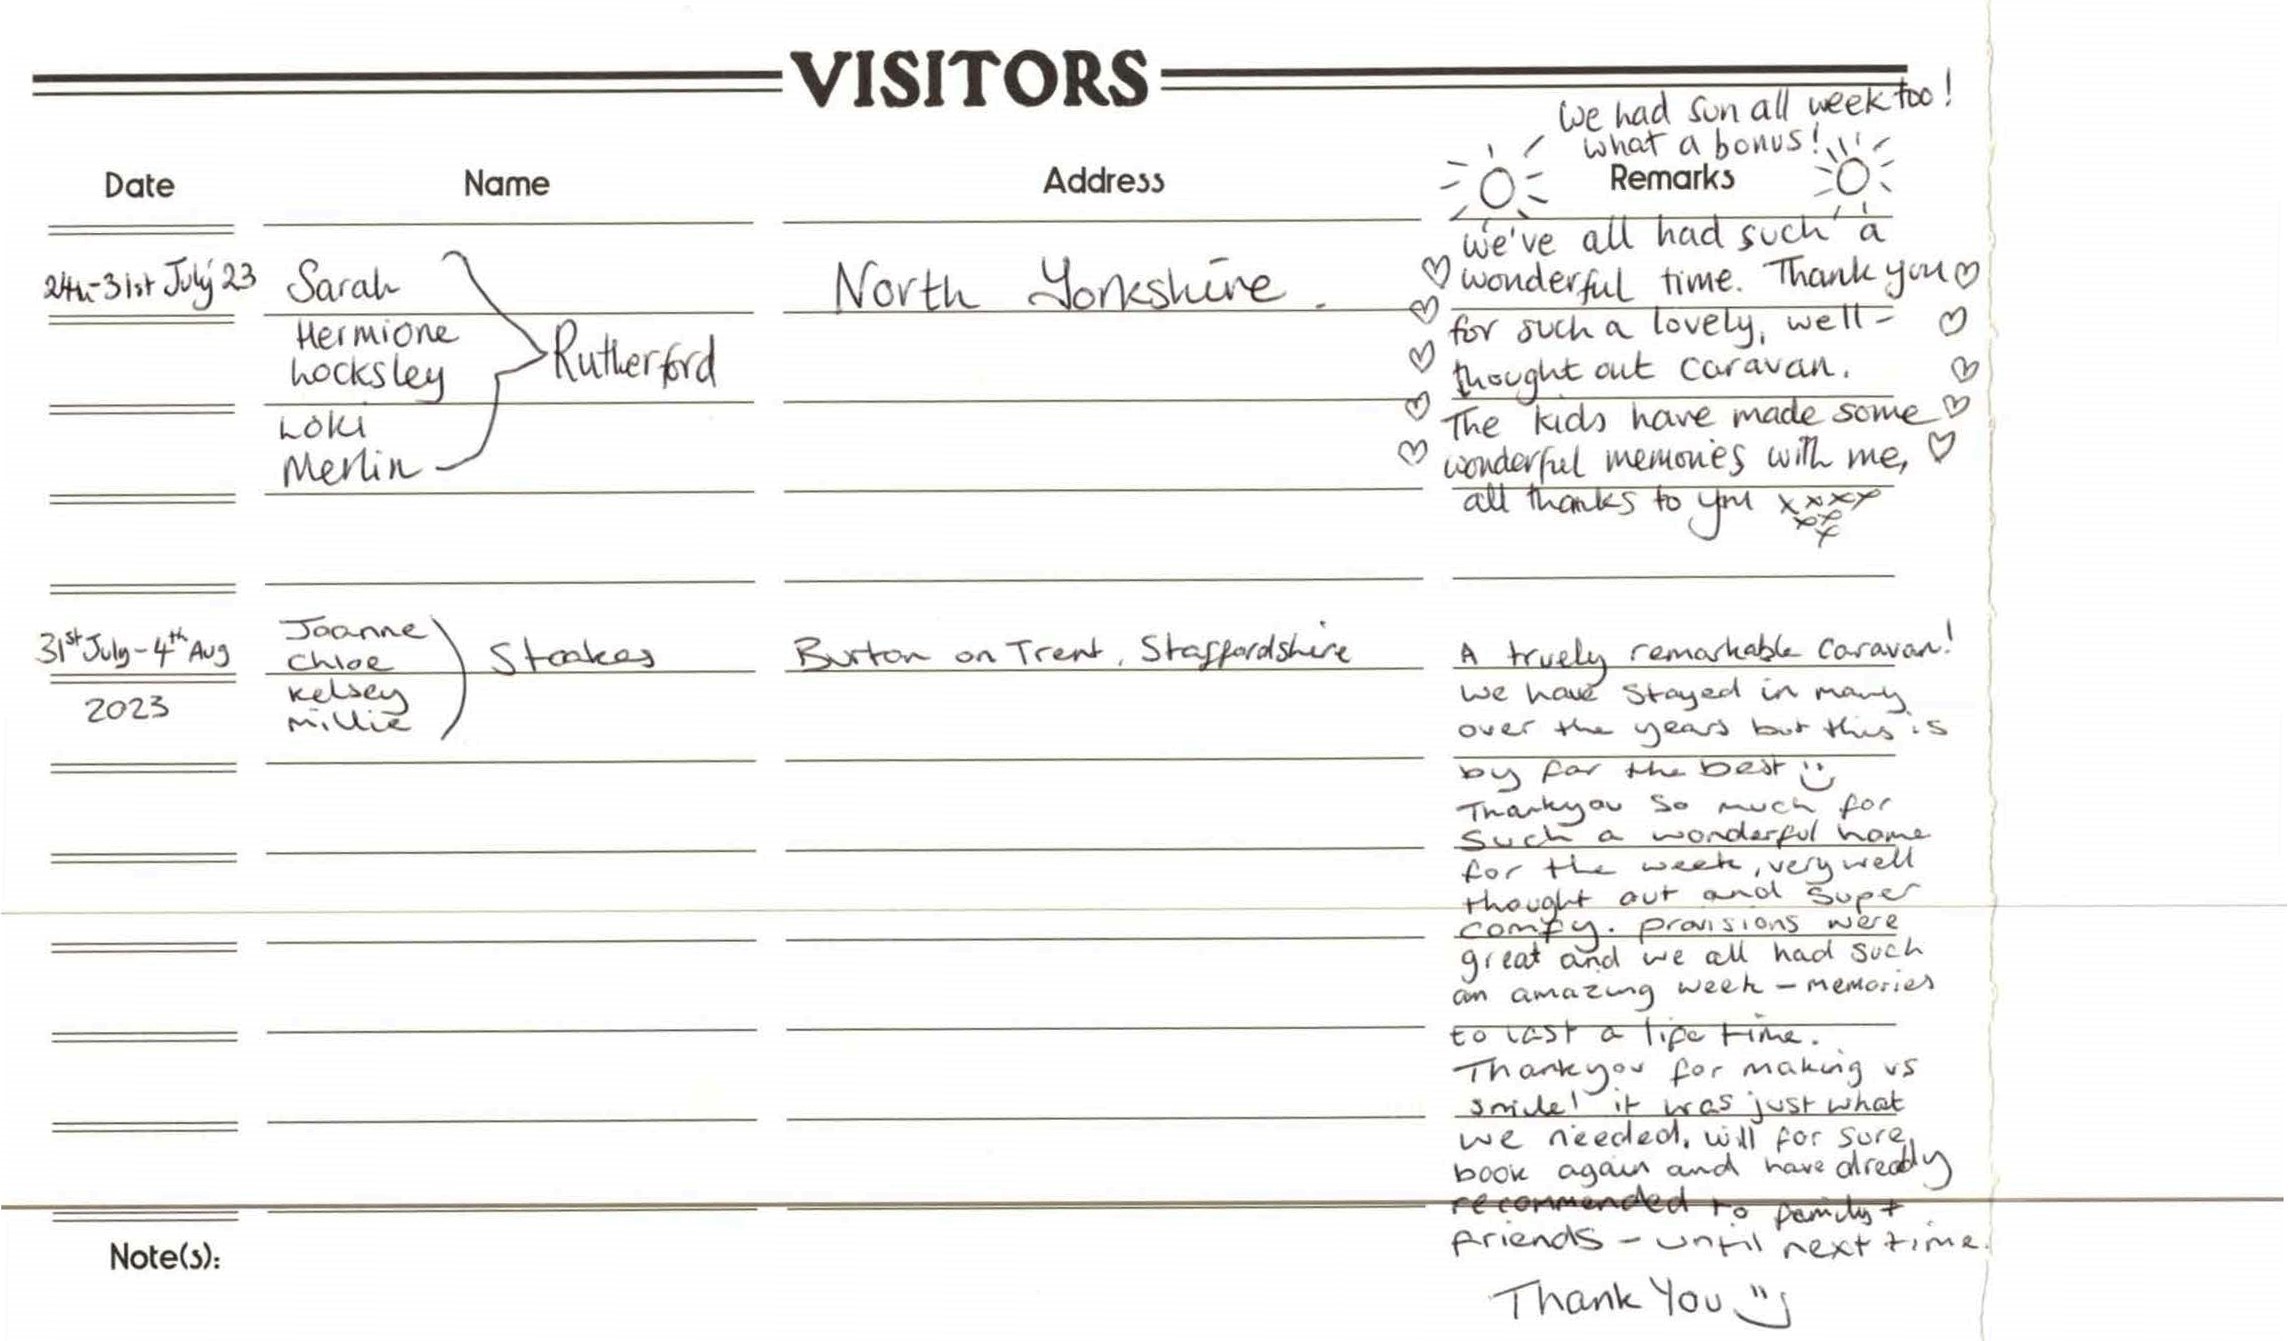 VISITORS
We had sun all week too!
what a bonus!
Date Name Address Remarks
We've all had such a
24th-31st July'23 Sarah North Yorkshire. wonderful time. Thank you
Hermione for such a lovely, well-
Locksley Rutherford thought out caravan.
Loki The kids have made some
Merlin wonderful memories with me,
all thanks to you xxxx
xx
x
Joanne
31st July-4th Aug Chloe Stookes Burton on Trent, Staffordshire A truely remarkable caravan!
2023 Kelsey We have stayed in many
Millie over the years but this is
by far the best
Thankyou so much for
such a wonderful home
for the week, very well
thought out and super
comfy. provisions were
great and we all had such
an amazing week - memories
to last a life time.
Thankyou for making us
smile! it was just what
we needed, will for sure
book again and have already
recommended to family +
Note(s): friends - until next time.
Thank You